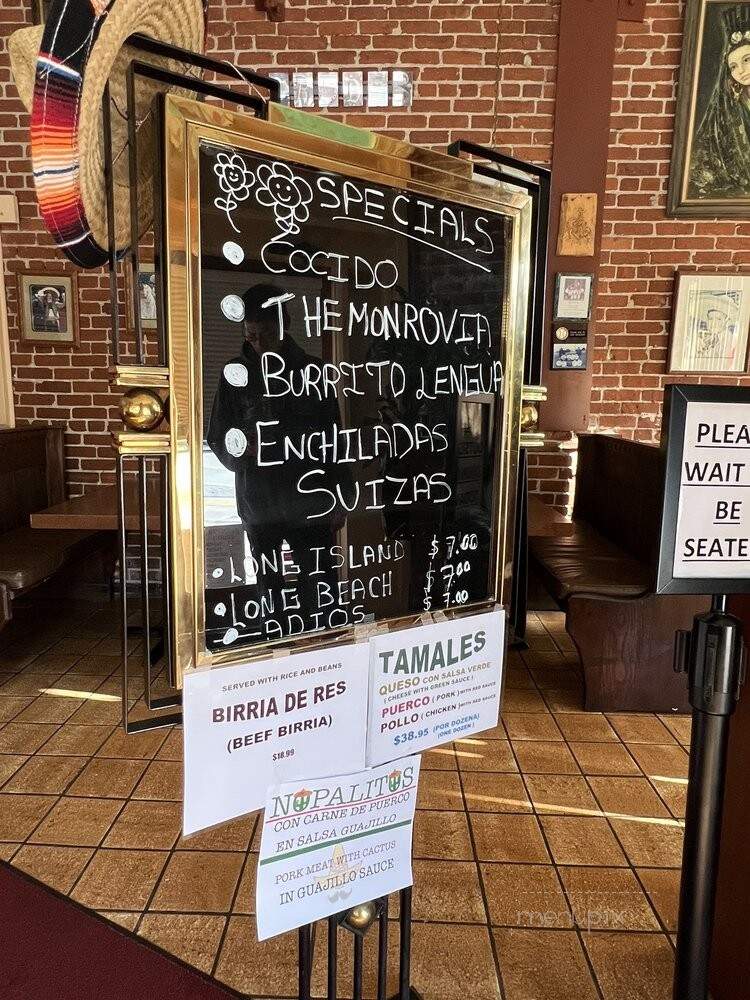 SPECIALS
• COCIDO
• THE MONROVIA
• BURRITO LENGUA
• ENCHILADAS
SUIZAS
• LONG ISLAND $7.00
• LONG BEACH $7.00
• ADIOS $7.00
SERVED WITH RICE AND BEANS
BIRRIA DE RES
(BEEF BIRRIA)
$18.99
TAMALES
QUESO CON SALSA VERDE
( CHEESE WITH GREEN SAUCE )
PUERCO ( PORK ) WITH RED SAUCE
POLLO ( CHICKEN ) WITH RED SAUCE
$38.95 (POR DOZENA)
(ONE DOZEN )
NOPALITOS
CON CARNE DE PUERCO
EN SALSA GUAJILLO
PORK MEAT WITH CACTUS
IN GUAJILLO SAUCE
PLEA
WAIT
BE
SEATE
menupix